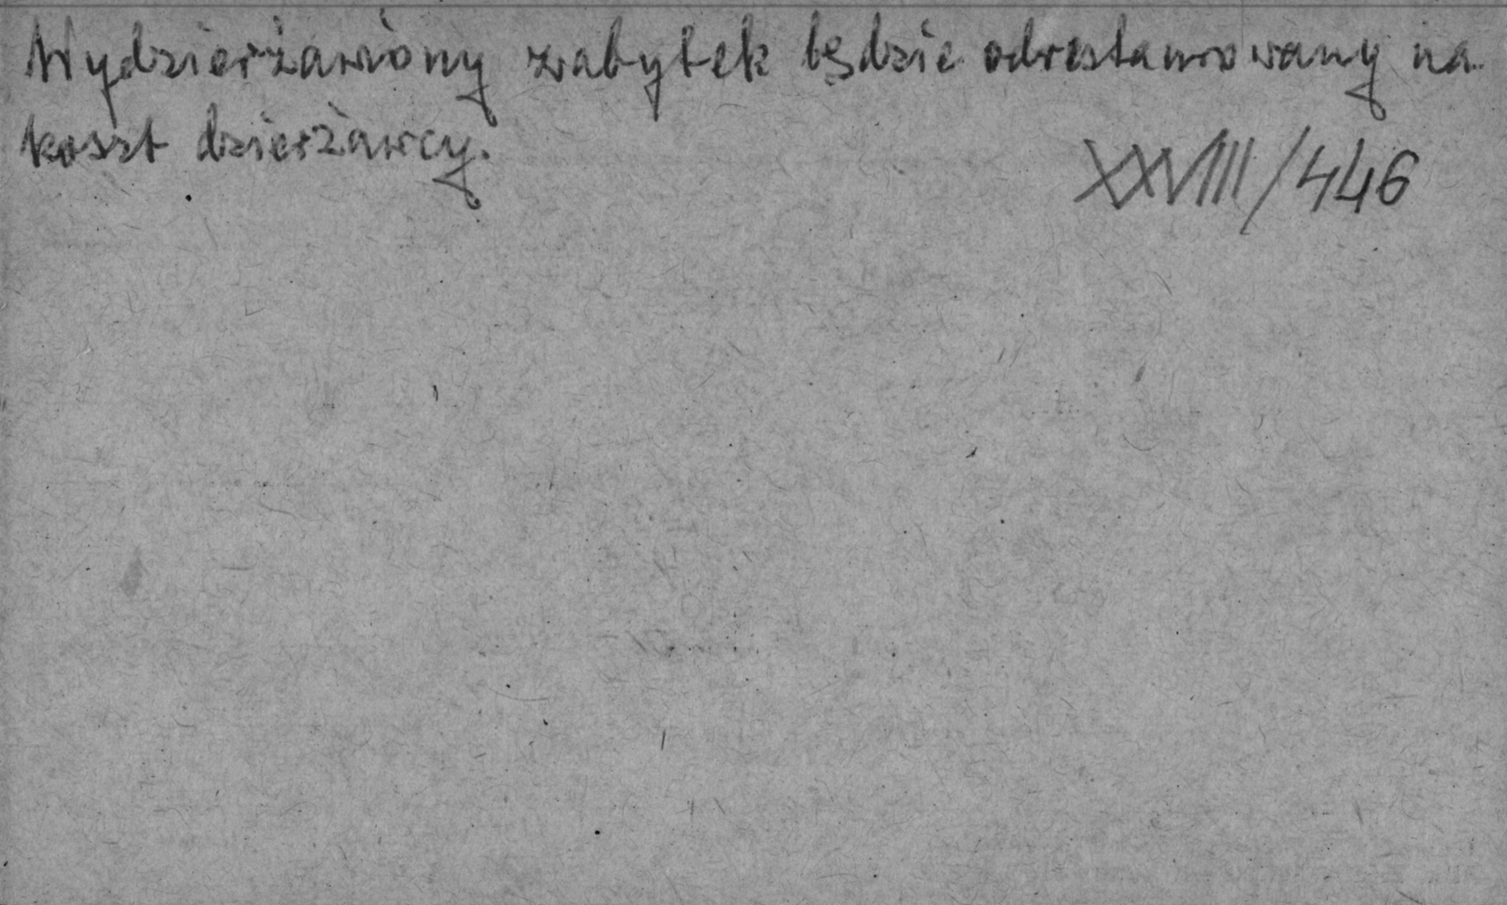 Wydzierżawiony zabytek będzie odrestaurowany na
koszt dzierżawcy.
XXVIII/446